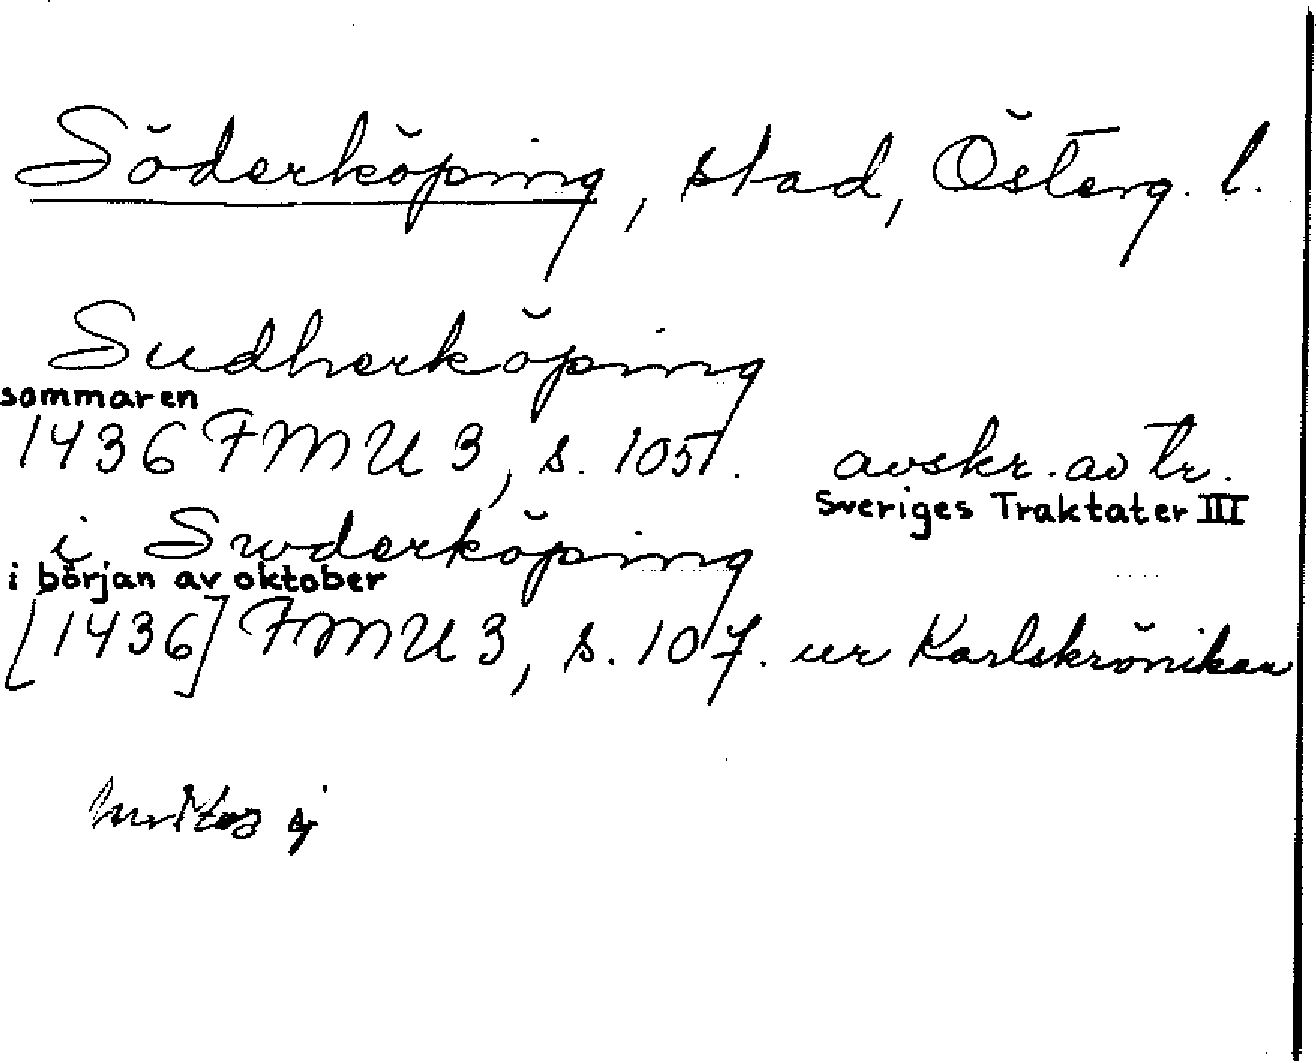 Söderköping, stad, Österg. l.
Sudherköping
sommaren
1436 FMU 3, s. 105. avskr. av tr.
Sveriges Traktater III
i Swderköping
i början av oktober
[1436] FMU 3, s. 107. ur Karlskrönikan
ej